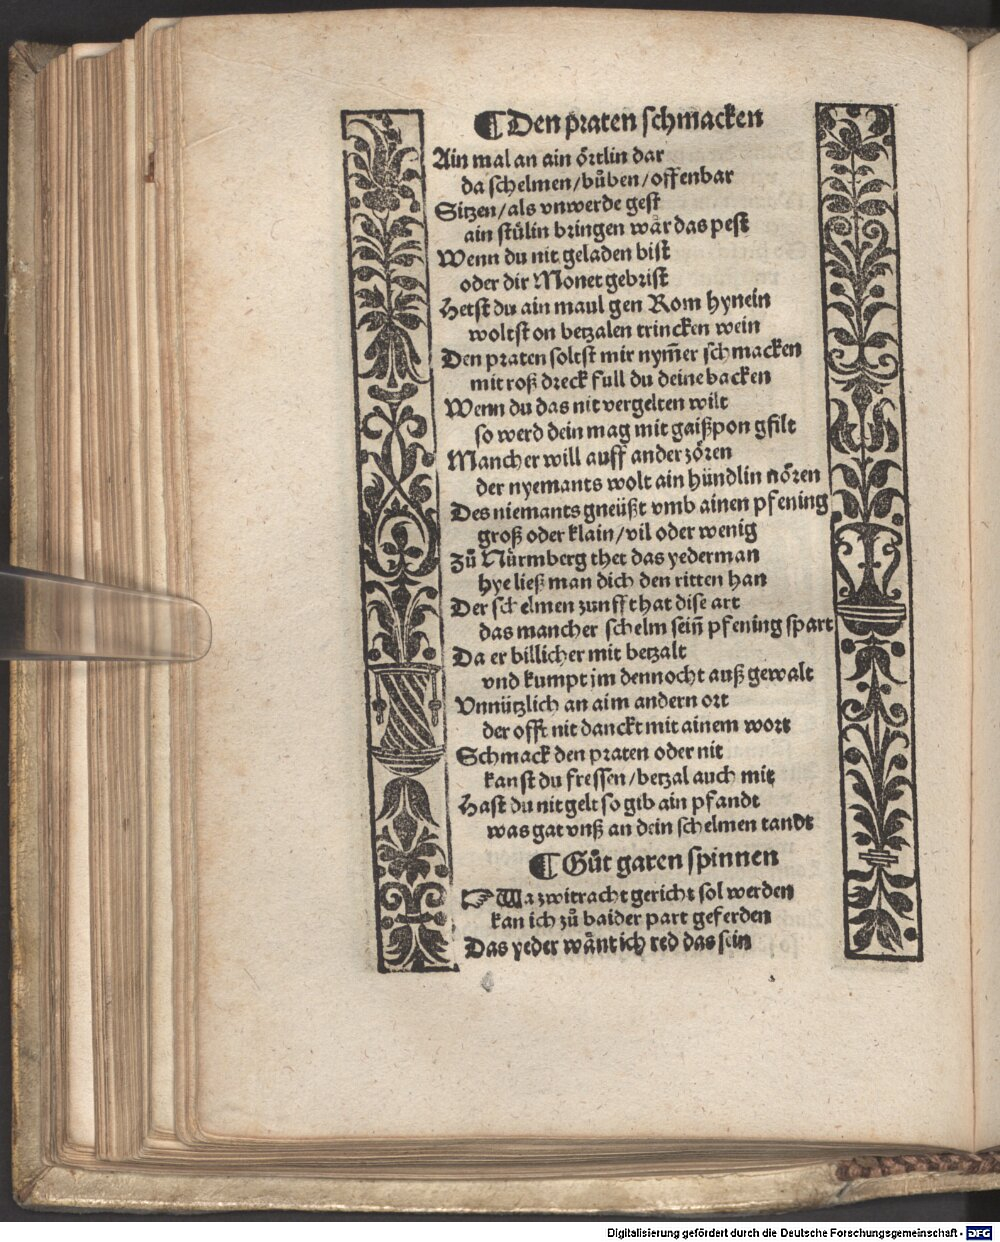 ¶ Den praten schmacken
Ain mal an ain oͤrtlin dar
da schelmen/buͦben/offenbar
Sitzen/als vnwerde gest
ain stuͦlin bringen waͤr das pest
Wenn du nit geladen bist
oder dir Monet gebrist
Hetst du ain maul gen Rom hynein
woltst on betzalen trincken wein
Den praten soltst mir nym̃er schmacken
mit roß dreck full du deine backen
Wenn du das nit vergelten wilt
so werd dein mag mit gaißpon gfilt
Mancher will auff ander zoͤren
der nyemants wolt ain hündlin noͤren
Des niemants gneüßt vmb ainen pfening
groß oder klain/vil oder wenig
Zuͦ Nürmberg thet das yederman
hye ließ man dich den ritten han
Der schelmen zunfft hat dise art
das mancher schelm sein̄ pfening spart
Da er billicher mit betzalt
vnd kumpt im dennocht auß gewalt
Vnnützlich an aim andern ort
der offt nit danckt mit ainem wort
Schmack den praten oder nit
kanst du fressen/betzal auch mit
Hast du nit gelt so gib ain pfandt
was gat vnß an dein schelmen tandt
¶ Guͦt garen spinnen
☞ Wa zwitracht gericht sol werden
kan ich zuͦ baider part geferden
Das yeder waͤnt ich red das sein
Digitalisierung gefördert durch die Deutsche Forschungsgemeinschaft - DFG